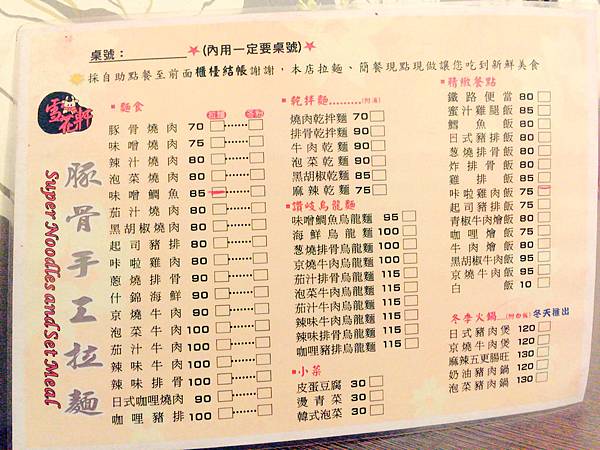 桌號：
★(內用一定要桌號)★
採自助點餐至前面櫃檯結帳謝謝，本店拉麵、簡餐現點現做讓您吃到新鮮美食
雪花軒
豚骨手工拉麵
Super Noodles and Set Meal
麵食
拉麵 冬粉
豚骨燒肉 70
味噌燒肉 75
辣汁燒肉 80
泡菜燒肉 80
味噌鯛魚 85
茄汁燒肉 80
黑胡椒燒肉 80
起司豬排 80
咔啦雞肉 80
蔥燒排骨 90
什錦海鮮 90
京燒牛肉 90
泡菜牛肉 100
茄汁牛肉 100
辣味牛肉 100
辣味排骨 100
日式咖哩燒肉 90
咖哩豬排 100
乾拌麵.........(附湯)
燒肉乾拌麵 70
排骨乾拌麵 90
牛肉乾麵 90
泡菜乾麵 90
黑胡椒乾麵 85
麻辣乾麵 75
讚岐烏龍麵
味噌鯛魚烏龍麵 95
海鮮烏龍麵 100
蔥燒排骨烏龍麵 100
京燒牛肉烏龍麵 100
茄汁排骨烏龍麵 115
泡菜牛肉烏龍麵 115
茄汁牛肉烏龍麵 115
辣味牛肉烏龍麵 115
辣味排骨烏龍麵 115
咖哩豬排烏龍麵 115
小菜
皮蛋豆腐 30
燙青菜 30
韓式泡菜 30
精緻餐點
鐵路便當 80
蜜汁雞腿飯 85
鱈魚飯 80
日式豬排飯 80
蔥燒排骨飯 80
炸排骨飯 80
雞排飯 85
咔啦雞肉飯 75
起司豬排飯 75
青椒牛肉燴飯 90
咖哩燴飯 75
牛肉燴飯 80
黑胡椒牛肉飯 95
京燒牛肉飯 95
白飯 10
冬季火鍋...(附白飯) 冬天推出
日式豬肉煲 120
京燒牛肉煲 120
麻辣五更腸旺 130
奶油豬肉鍋 120
泡菜豬肉鍋 130